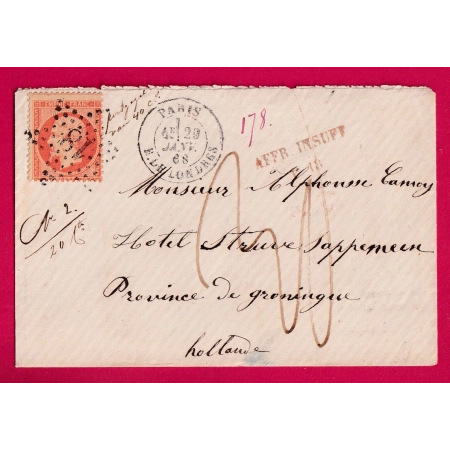 EMPIRE FRANC
18
PARIS
4E 29
JANV.
68
R. DE LONDRES
178.
AFFR. INSUFF
18
Monsieur Alphonse Lamoy
Hotel Struve Sappemeer
Province de Groningue
hollande
No 2.
20
30